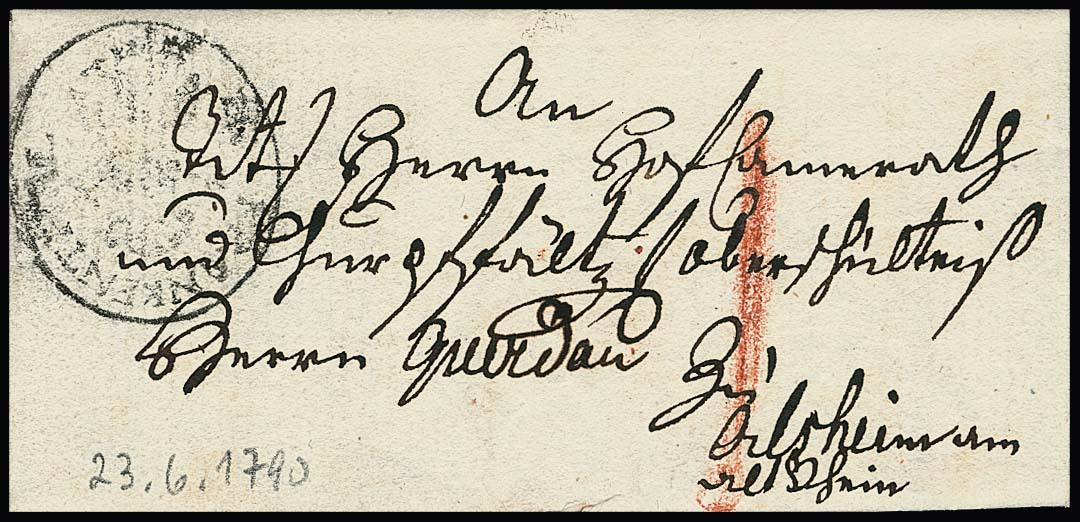 An
Tit. Herrn Hofkamerath
und Churpfältz. oberschulteiß
Herrn Guerdan
Zu
Alsheim am
alt Rhein
23.6.1790